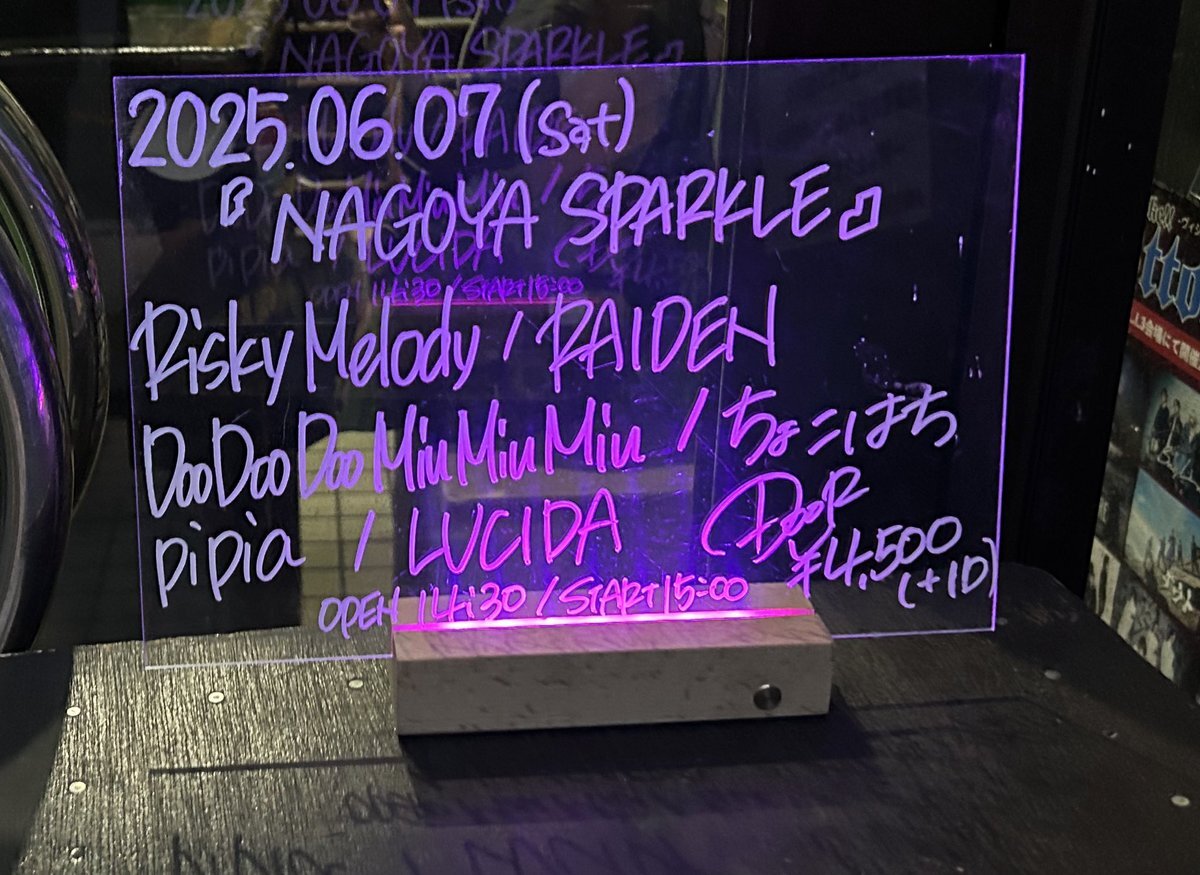 2025.06.07(Sat)
『NAGOYA SPARKLE』
Risky Melody / RAIDEN
DooDooDooMiuMiuMiu / ちょこはち
pipia / LUCIDA (DooR
¥4,500
(+1D)
OPEN 14:30 / START 15:00
会場にて開